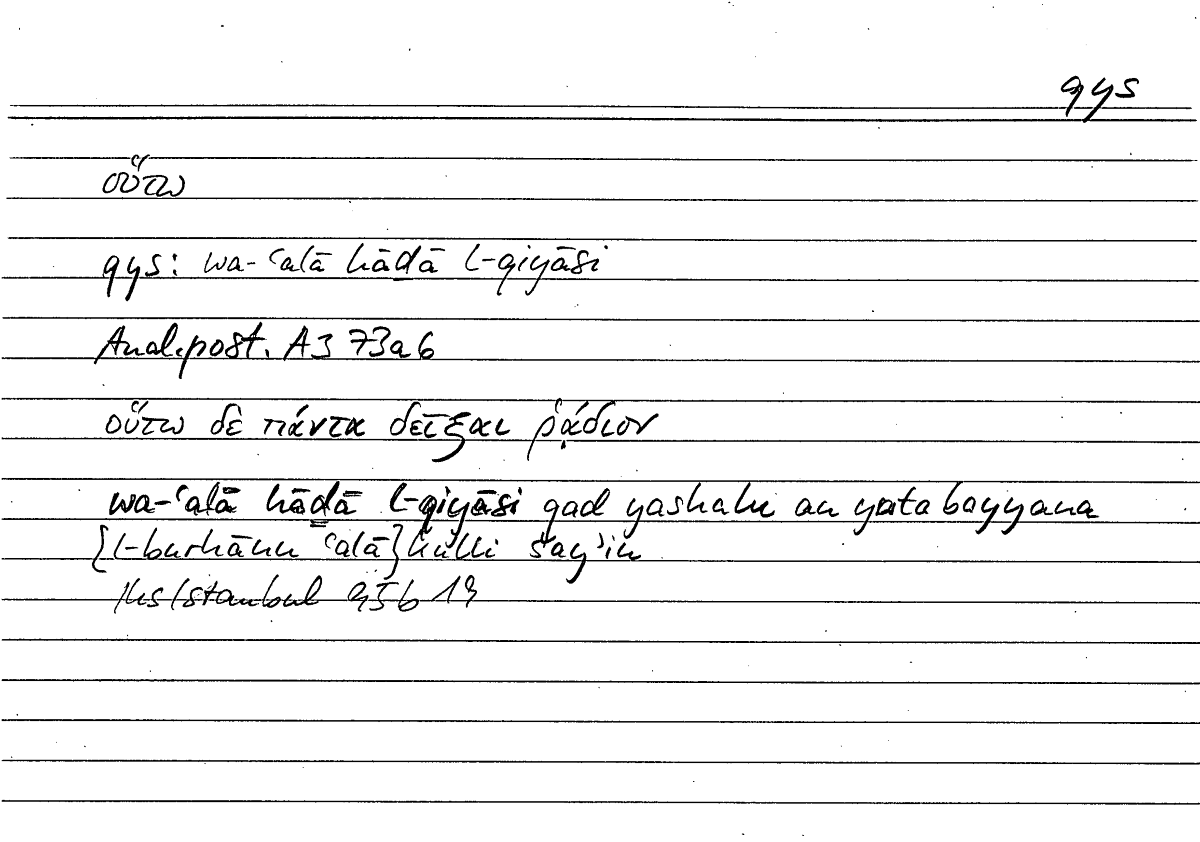 qys
οὕτω
qys: wa-ʿalā hāḏā l-qiyāsi
Anal.post. A3 73a6
οὕτω δὲ πάντα δεῖξαι ῥᾴδιον
wa-ʿalā hāḏā l-qiyāsi qad yashalu an yatabayyana
[l-burhānu ʿalā] kulli šayʾin
Hs Istanbul 95b 19